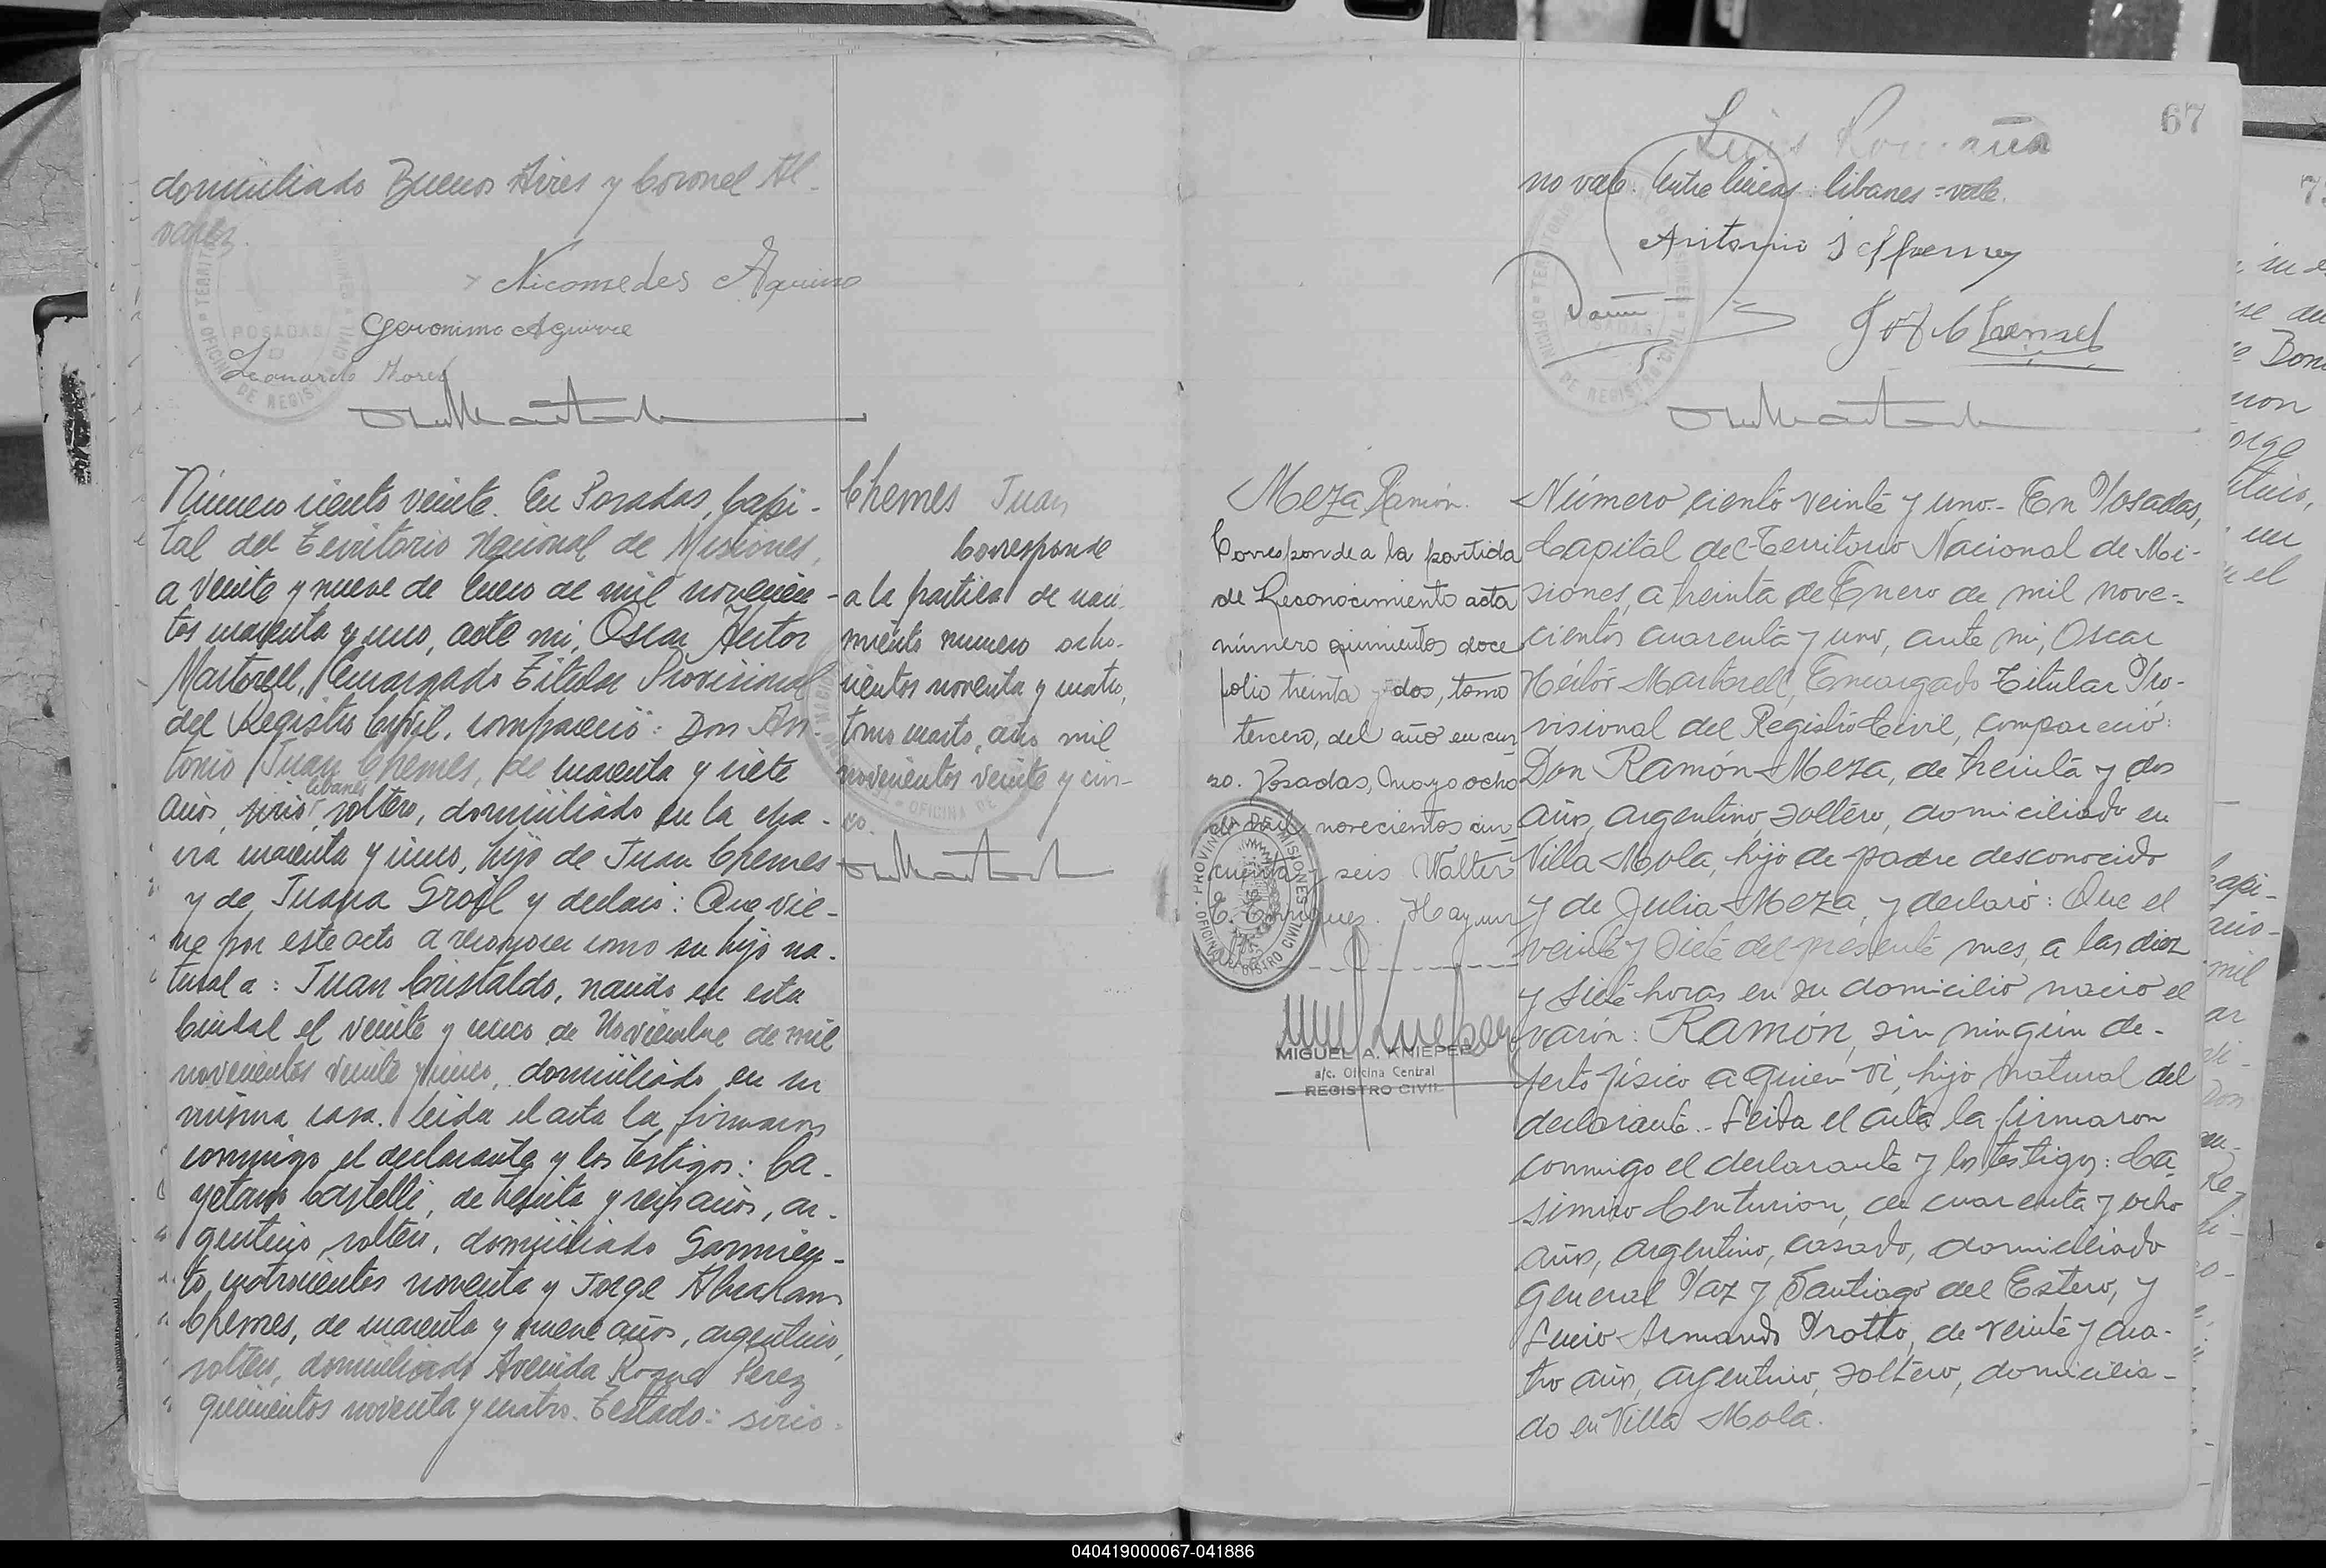 domiciliado Buenos Aires y Coronel Al-
varez.
Nicomedes Aquino
Geronimo Aguirre
Leonardo
POSADAS
OFICINA DE REGISTRO CIVIL
Número ciento veinte. En Posadas, Capi-
tal del Territorio Nacional de Misiones,
a veinte y nueve de Enero de mil novecien-
tos cuarenta y uno, ante mi, Oscar Hector
Martorell, Encargado Titular Provisional
del Registro Civil, compareció: Don An-
tonio Juan Chemes, de cuarenta y siete
libanes
años, sirio, soltero, domiciliado en la cha-
cra cuarenta y cinco, hijo de Juan Chemes
y de Juana y declaró: Que vie-
ne por este acto a reconocer como su hijo na-
tural a: Juan Cristaldo, nacido en esta
Ciudad el veinte y cinco de Noviembre de mil
novecientos veinte y cinco, domiciliado en su
misma casa. Leida el acta la firmaron
conmigo el declarante y los testigos: Ca-
yetano Castelli, de treinta y seis años, ar-
gentino, soltero, domiciliado Sarmien-
to cuatrocientos noventa y Jorge Abraham
Chemes, de cuarenta y nueve años, argentino,
soltero, domiciliado Avenida Roque Perez
quinientos noventa y cuatro. Testado: sirio=
Chemes Juan
Corresponde
a la partida de naci-
miento numero ocho-
cientos noventa y cuatro,
tomo cuarto, año mil
novecientos veinte y cin-
co.
67
Luis
no vale. Entre lineas: libanes = vale.
Antonio J Chemes
Meza Ramón.
Corresponde a la partida
de Reconocimiento acta
número quinientos doce
folio treinta y dos, tomo
tercero, del año en cur
so. Posadas, Mayo ocho
de mil novecientos cin
cuenta y seis Walter
E. Enriquez. Hay un
PROVINCIA DE MISIONES
OFICINA REGISTRO CIVIL
MIGUEL A. KNIEPER
a/c. Oficina Central
REGISTRO CIVIL
Número ciento veinte y uno.- En Posadas,
Capital del Territorio Nacional de Mi-
siones, a treinta de Enero de mil nove-
cientos cuarenta y uno, ante mi, Oscar
Héctor Martorell, Encargado Titular Pro-
visional del Registro Civil, compareció:
Don Ramón Meza, de treinta y dos
años, argentino, soltero, domiciliado en
Villa Mola, hijo de padre desconocido
y de Julia Meza, y declaró: Que el
veinte y siete del presente mes, a las diez
y siete horas en su domicilio nació el
varón: Ramón, sin ningún de-
fecto físico a quien vi, hijo natural del
declarante.- Leida el acta la firmaron
conmigo el declarante y los testigos: Ca-
simiro Centurion, de cuarenta y ocho
años, argentino, casado, domiciliado
General Paz y Santiago del Estero, y
Lucio Armando Protto, de veinte y cua-
tro años, argentino, soltero, domicilia-
do en Villa Mola.
040419000067-041886